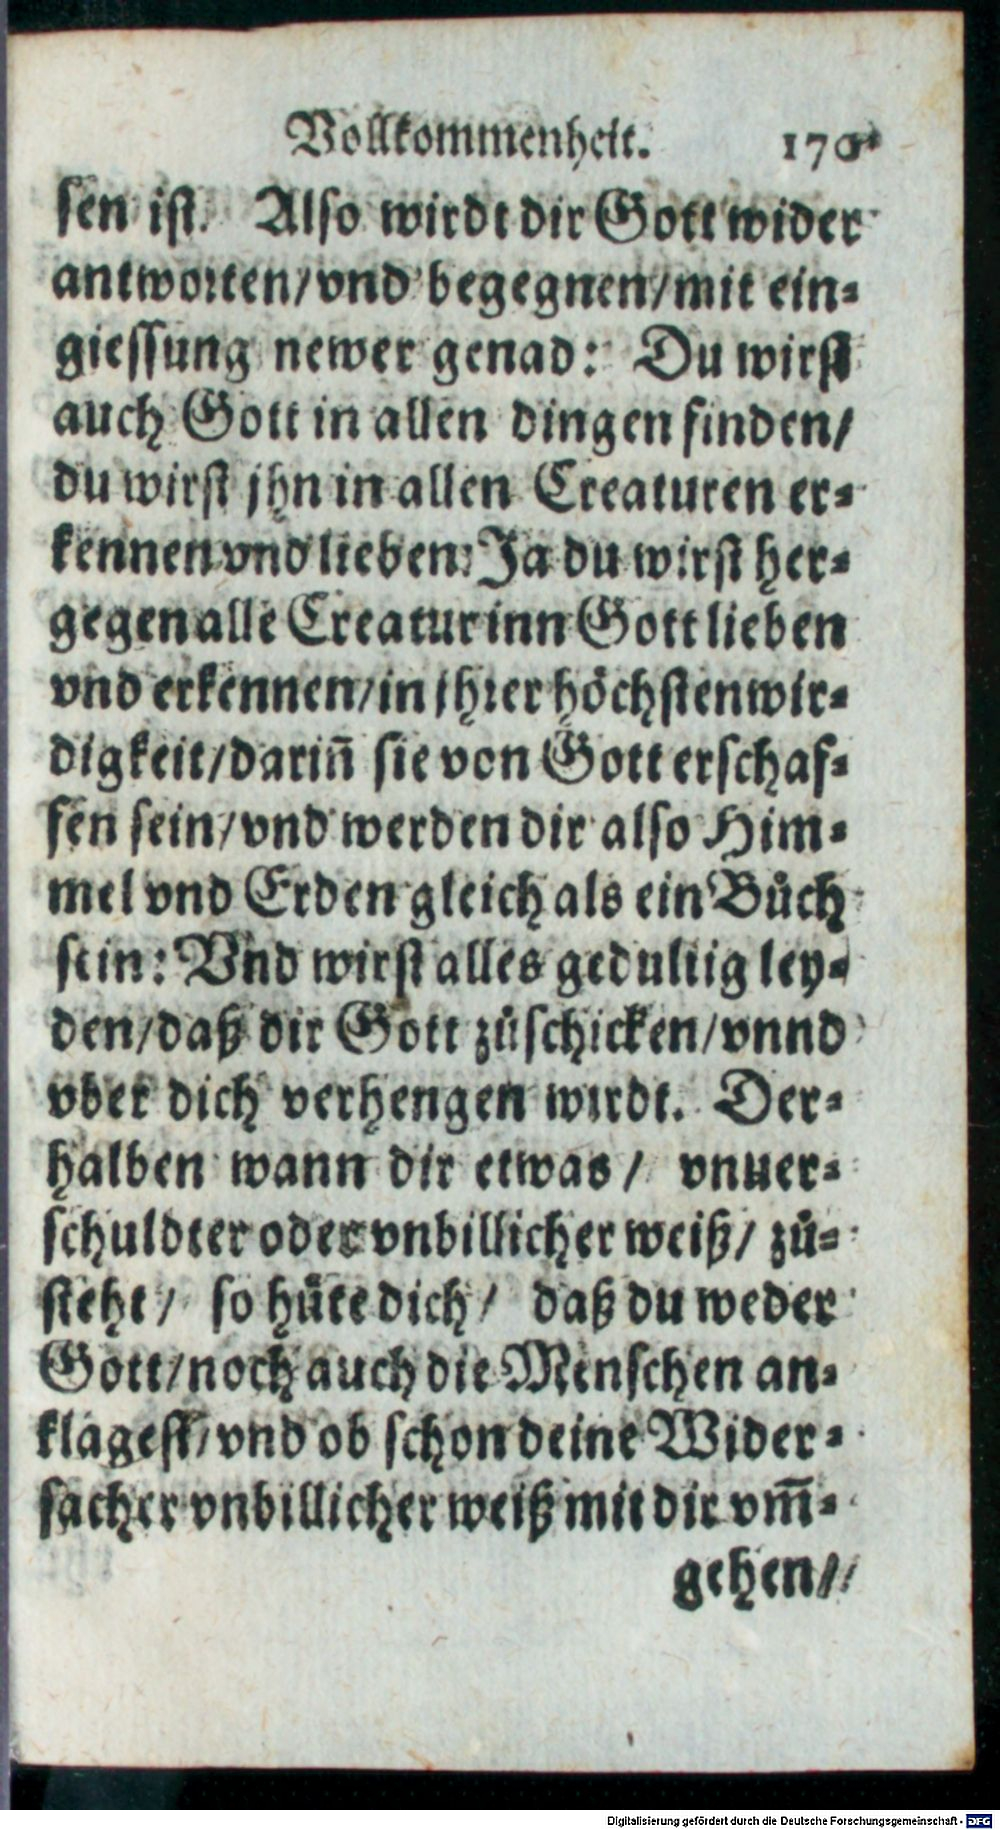 Vollkommenheit. 170
sen ist. Also wirdt dir Gott wider
antworten/vnd begegnen/mit ein-
giessung newer genad: Du wirst
auch Gott in allen dingen finden/
du wirst jhn in allen Creaturen er-
kennen vnd lieben: Ja du wirst her-
gegen alle Creatur inn Gott lieben
vnd erkennen/in jhrer höchsten wir-
digkeit/darin̄ sie von Gott erschaf-
fen sein/vnd werden dir also Him-
mel vnd Erden gleich als ein Bůch
sein: Vnd wirst alles gedultig ley-
den/daß dir Gott zůschicken/vnnd
vber dich verhengen wirdt. Der-
halben wann dir etwas/ vnuer-
schuldter oder vnbillicher weiß/ zů-
steht/ so hüte dich/ daß du weder
Gott/noch auch die Menschen an-
klagest/vnd ob schon deine Wider-
sacher vnbillicher weiß mit dir vm̄-
gehen/
Digitalisierung gefördert durch die Deutsche Forschungsgemeinschaft - DFG